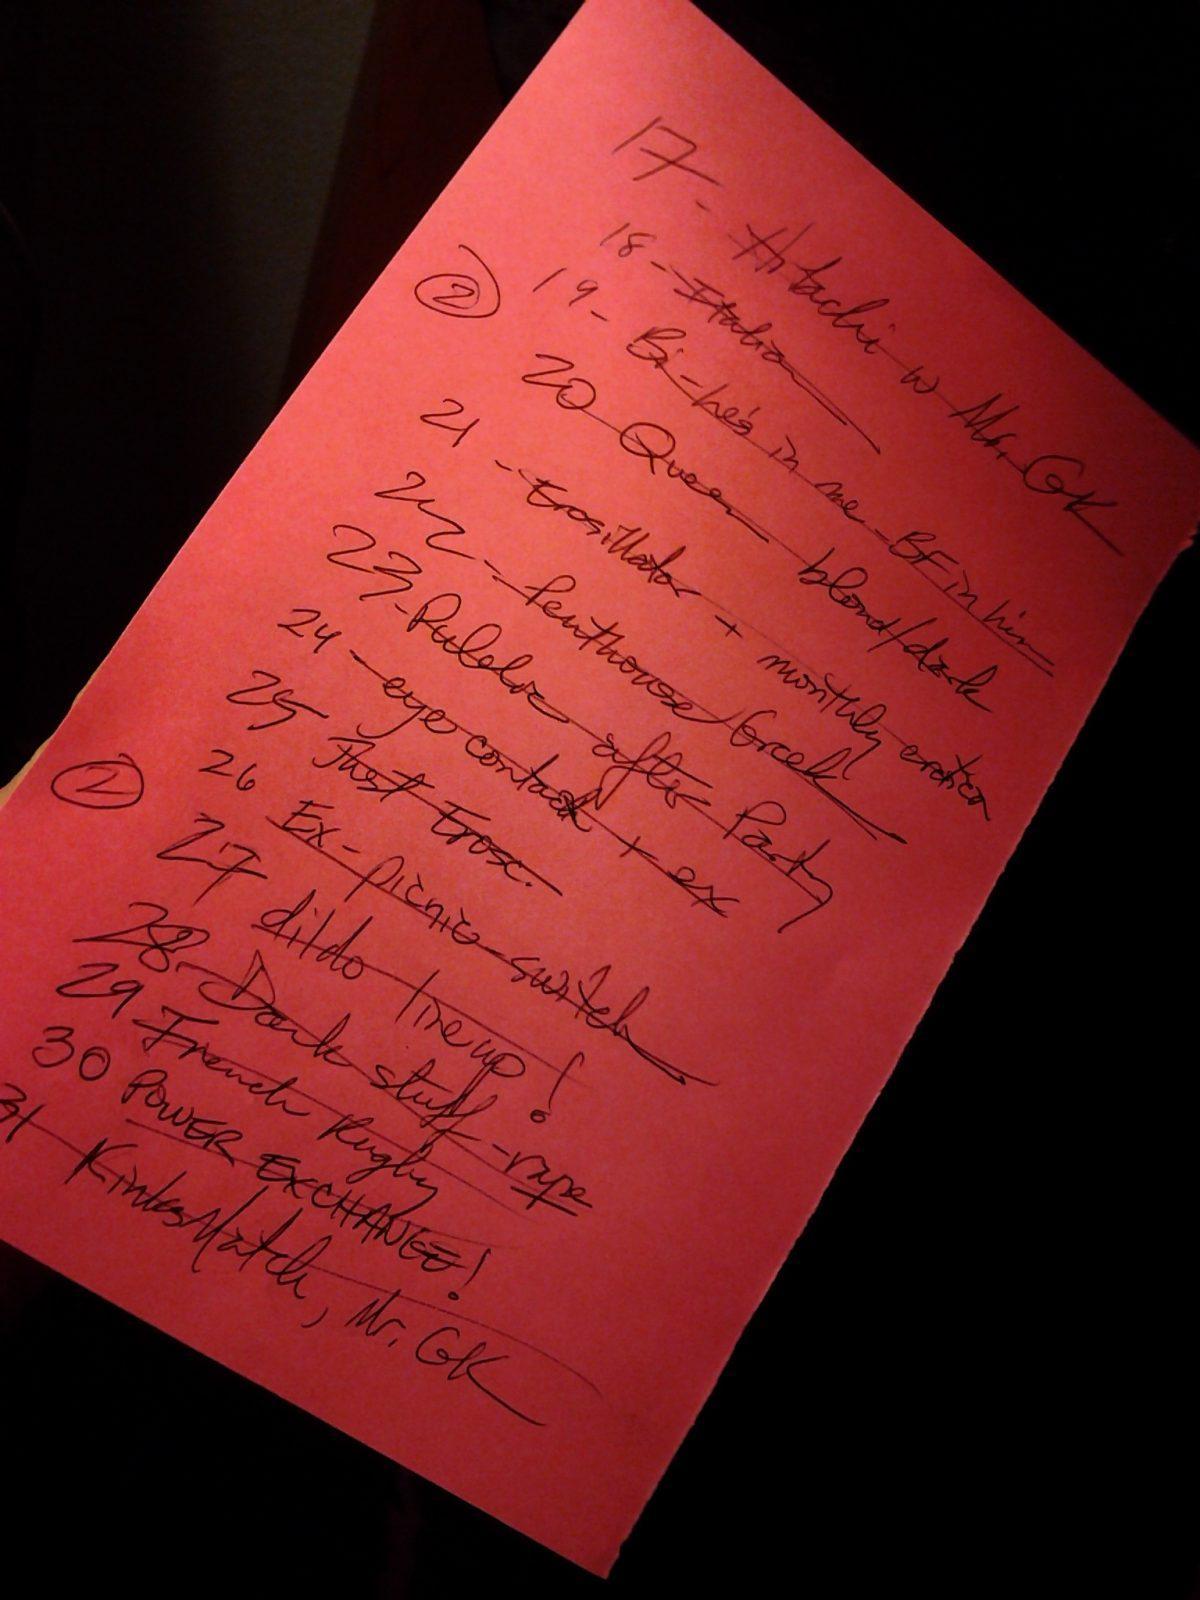 17 - Hitachi w Mr. GK
18 - Italian
② 19 - Bi - he's in me - BF in him
20 Queen blond/dark
21 - Erosillator + monthly erotica
22 - Penthouse/Greek
23 - after Party
24 - eye contact + ex
25 Eros.
② 26 Ex - picnic - switch
27 dildo line up!
28 - Dark stuff - rape
29 - French Rugby
30 POWER EXCHANGE!
31 KinksMatch, Mr. GK